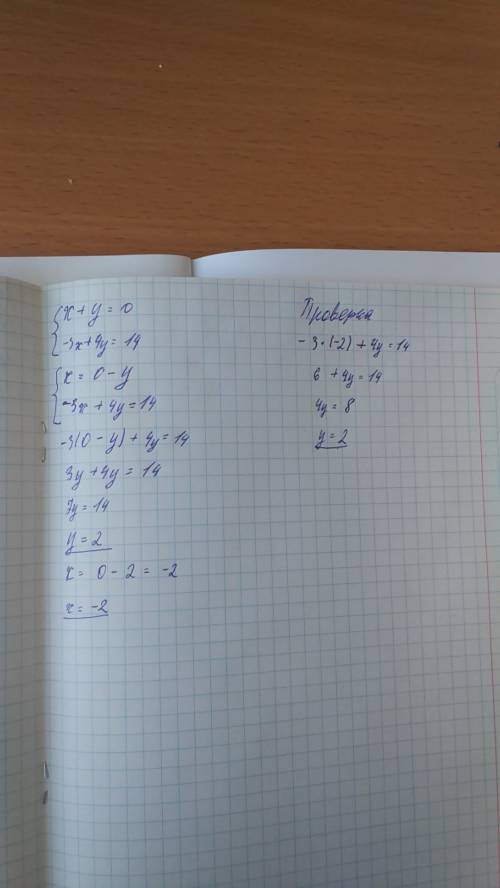 x + y = 0
-3x + 4y = 14
x = 0 - y
-3x + 4y = 14
-3(0 - y) + 4y = 14
3y + 4y = 14
7y = 14
y = 2
x = 0 - 2 = -2
x = -2
Проверка
-3·(-2) + 4y = 14
6 + 4y = 14
4y = 8
y = 2